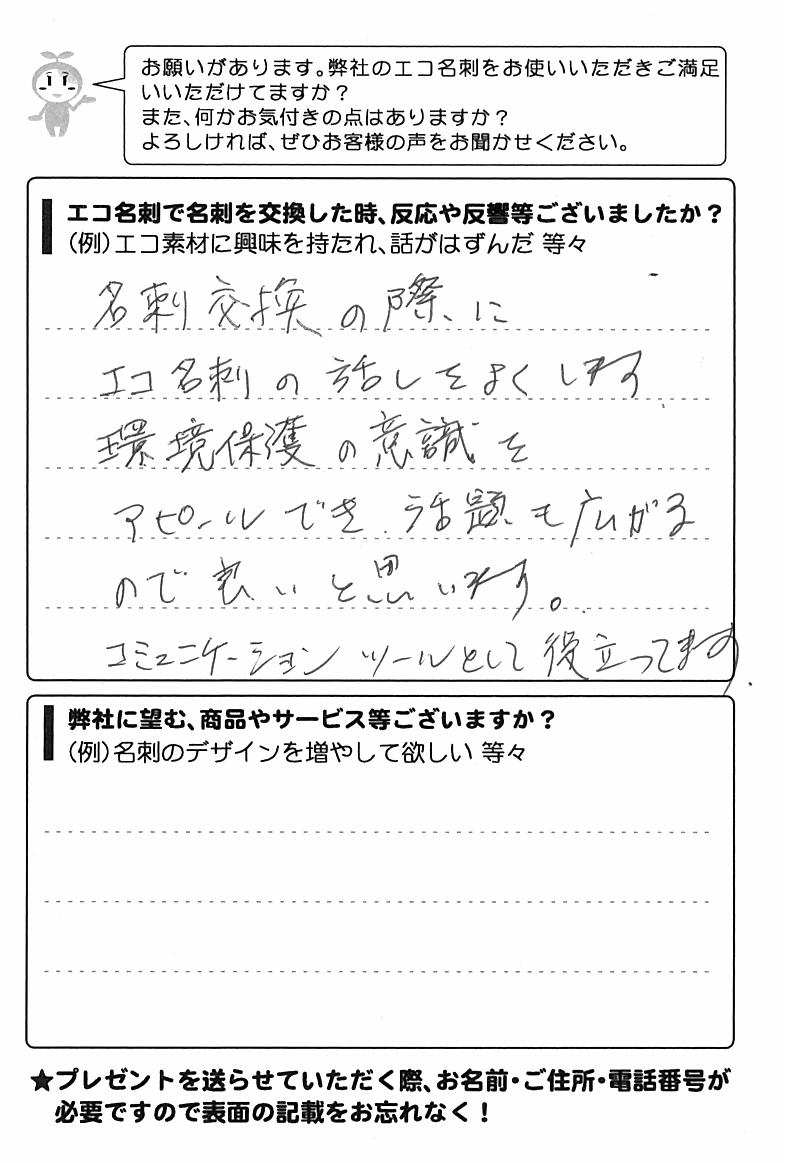 お願いがあります。弊社のエコ名刺をお使いいただきご満足
いいただけてますか？
また、何かお気付きの点はありますか？
よろしければ、ぜひお客様の声をお聞かせください。
エコ名刺で名刺を交換した時、反応や反響等ございましたか？
（例）エコ素材に興味を持たれ、話がはずんだ 等々
名刺交換の際に
エコ名刺の話しをよくします
環境保護の意識を
アピールでき、話題も広がる
ので良いと思います。
コミュニケーションツールとして役立ってます。
弊社に望む、商品やサービス等ございますか？
（例）名刺のデザインを増やして欲しい 等々
★プレゼントを送らせていただく際、お名前・ご住所・電話番号が
必要ですので表面の記載をお忘れなく！